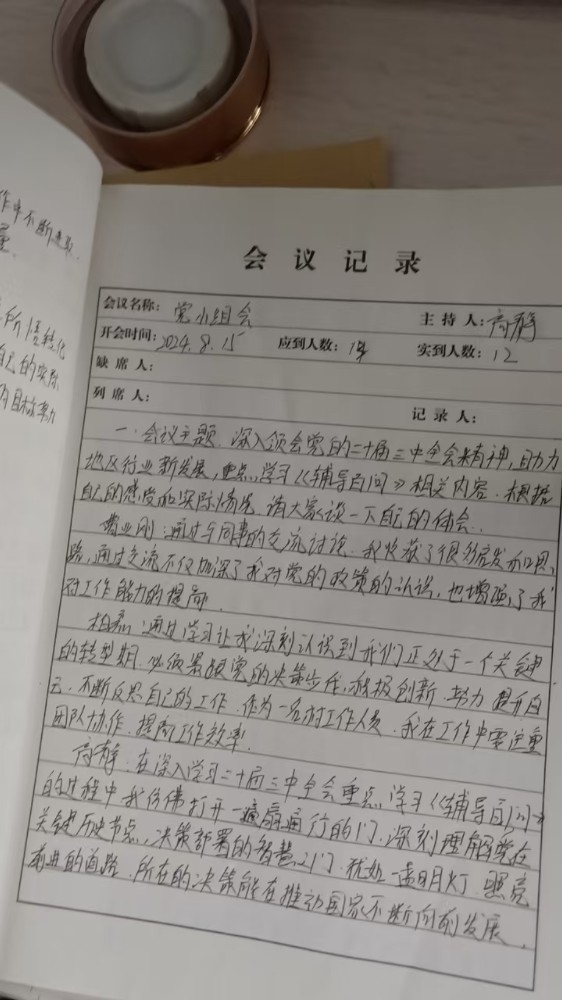 作中不断进取
量.
所悟转化
自己的实际
的目标努力
会议记录
会议名称: 党小组会 主持人: 高静
开会时间: 2024.8.15 应到人数: 实到人数: 12
缺席人:
列席人: 记录人:
一.会议主题.深入领会党的二十届三中全会精神,助力
地区行业新发展,重点学习《辅导百问》相关内容.根据
自己的感受和实际情况.请大家谈一下自己的体会.
业刚:通过与同事的交流讨论.我收获了很多启发和思
路,通过交流不仅加深了我对党的政策的认识,也增强了我
对工作能力的提高.
柏磊:通过学习让我深刻认识到我们正处于一个关键
的转型期.必须紧跟党的决策步伐,积极创新.努力提升自
己.不断反思自己的工作.作为一名工作人员.我在工作中要注重
团队协作,提高工作效率.
高静.在深入学习二十届三中全会重点学习《辅导百问》
的过程中我仿佛打开一扇通行的门.深刻理解党在
关键历史节点,决策部署的智慧之门.犹如一盏明灯.照亮
前进的道路.所在的决策能在推动国家不断向前发展.